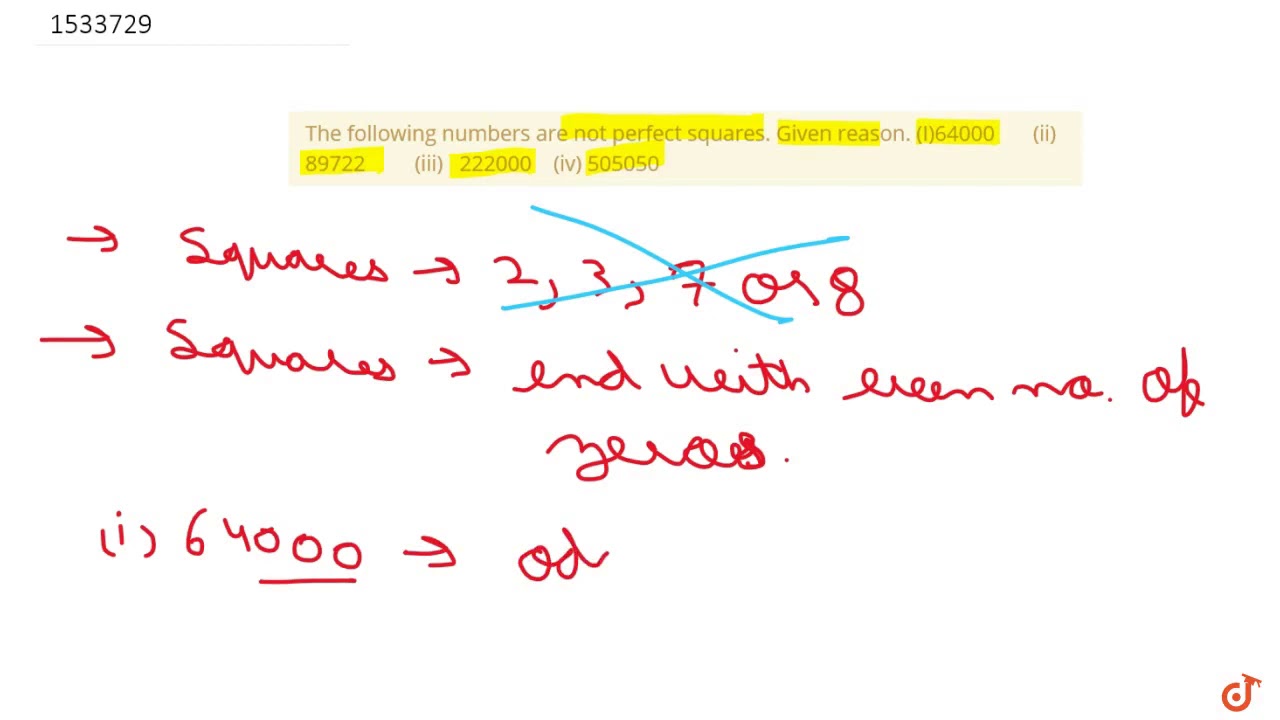 1533729
The following numbers are not perfect squares. Given reason. (I)64000 (ii)
89722 (iii) 222000 (iv) 505050
→ Squares → 2, 3, 7 or 8
→ Squares → end with even no. of
zeroes.
(i) 64000 → od